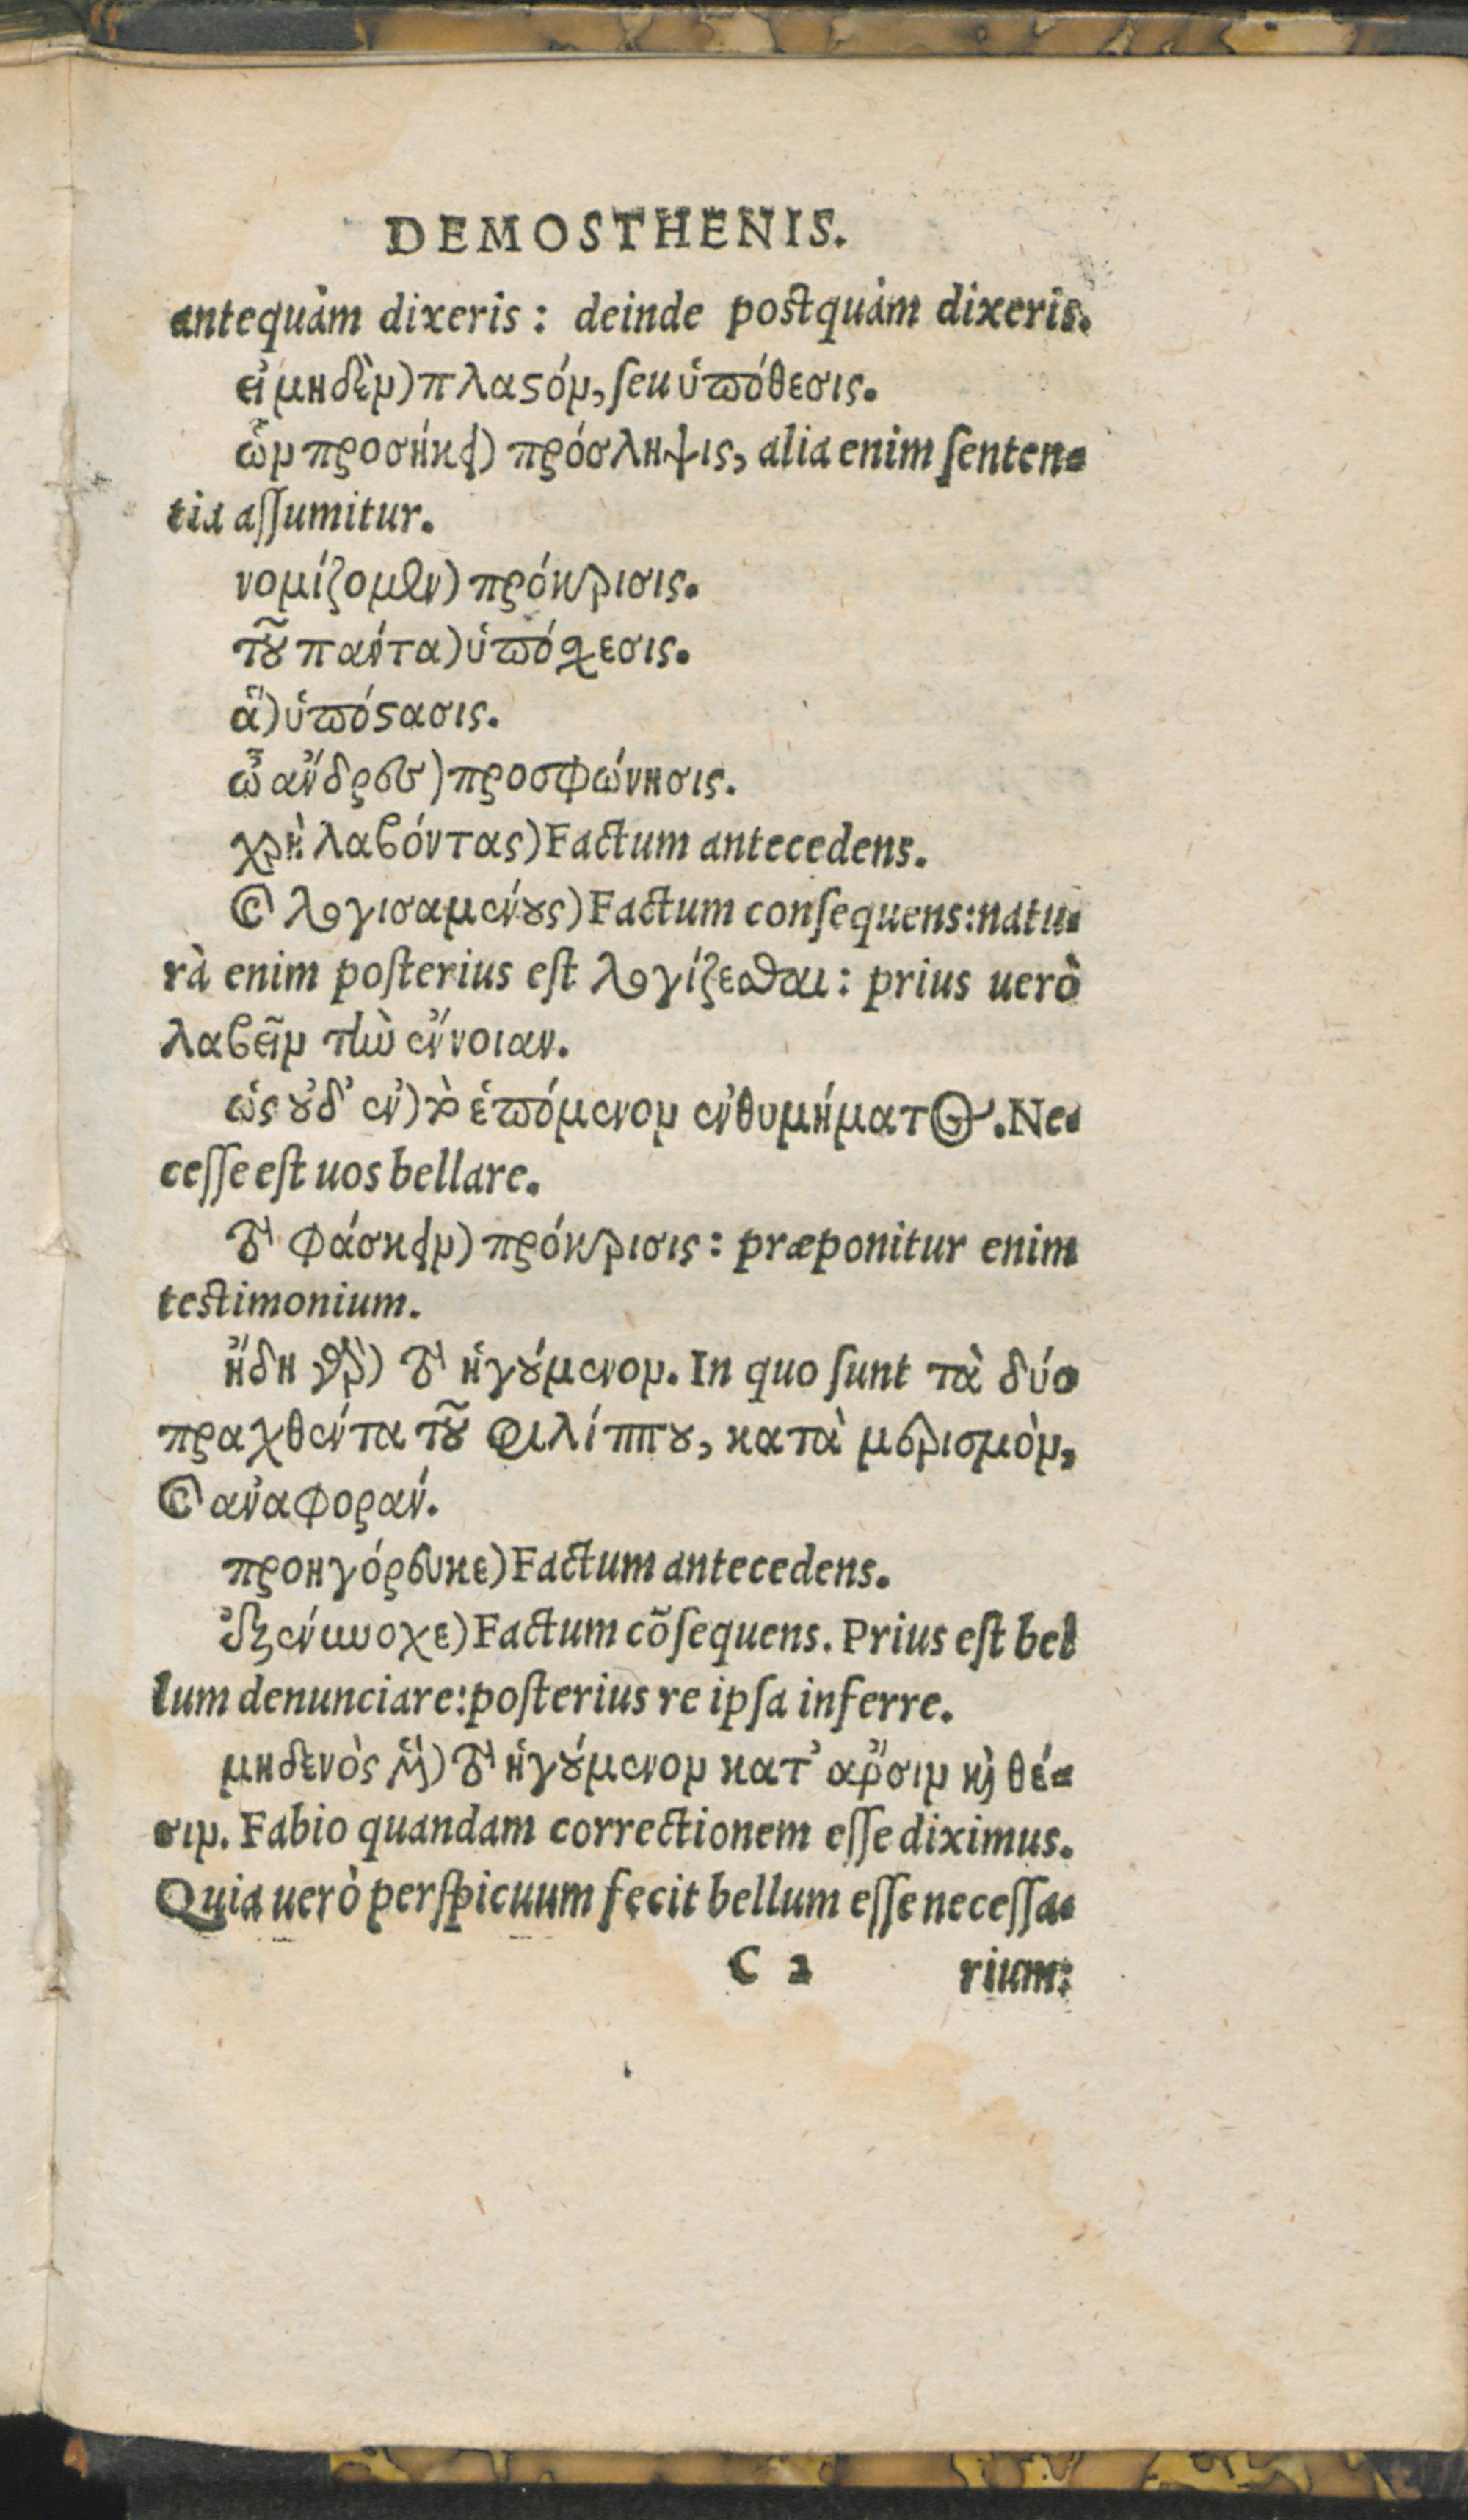 DEMOSTHENIS.
antequàm dixeris: deinde postquàm dixeris.
εἰ μηδὲν) πλαστόν, seu ὑπόθεσις.
ὧν προσήκει) πρόσληψις, alia enim senten-
tia assumitur.
νομίζομεν) πρόκρισις.
τοῦ πάντα) ὑπόθεσις.
ἃ) ὑπόστασις.
ὦ ἄνδρες) προσφώνησις.
χρὴ λαβόντας) Factum antecedens.
καὶ λογισαμένους) Factum consequens: natu-
rà enim posterius est λογίζεσθαι: prius uerò
λαβεῖν τὴν ἔννοιαν.
ὡς οὐδ' ἐν) τὸ ἑπόμενον ἐνθυμήματος. Ne-
cesse est uos bellare.
τὸ φάσκειν) πρόκρισις: præponitur enim
testimonium.
ἤδη γὰρ) τὸ ἡγούμενον. In quo sunt τὰ δύο
πραχθέντα τοῦ Φιλίππου, κατὰ μερισμὸν,
καὶ ἀναφοράν.
προηγόρευκε) Factum antecedens.
ἐξενήνοχε) Factum cõsequens. Prius est bel
lum denunciare: posterius re ipsa inferre.
μηδενὸς μὴ) τὸ ἡγούμενον κατ' ἄρσιν καὶ θέ-
σιν. Fabio quandam correctionem esse diximus.
Quia uerò perspicuum fecit bellum esse necessa-
C 2 rium: